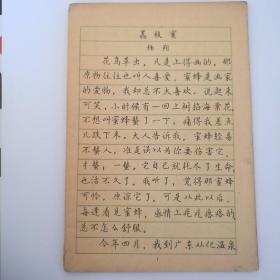 荔枝蜜
杨朔
花鸟草虫，凡是上得画的，那
原物往往也叫人喜爱。蜜蜂是画家
的爱物，我却总不大喜欢。说起来
可笑，小时候有一回上树掐海棠花，
不想叫蜜蜂螫了一下，痛得我差点
儿跌下来。大人告诉我，蜜蜂轻易
不螫人，准是误以为你要伤害它，
才螫；一螫，它自己就耗尽了生命，
也活不久了。我听了，觉得那蜜蜂
可怜，原谅它了。可是从此以后，
每逢看见蜜蜂，感情上疙疙瘩瘩的，
总不怎么舒服。
今年四月，我到广东从化温泉
1